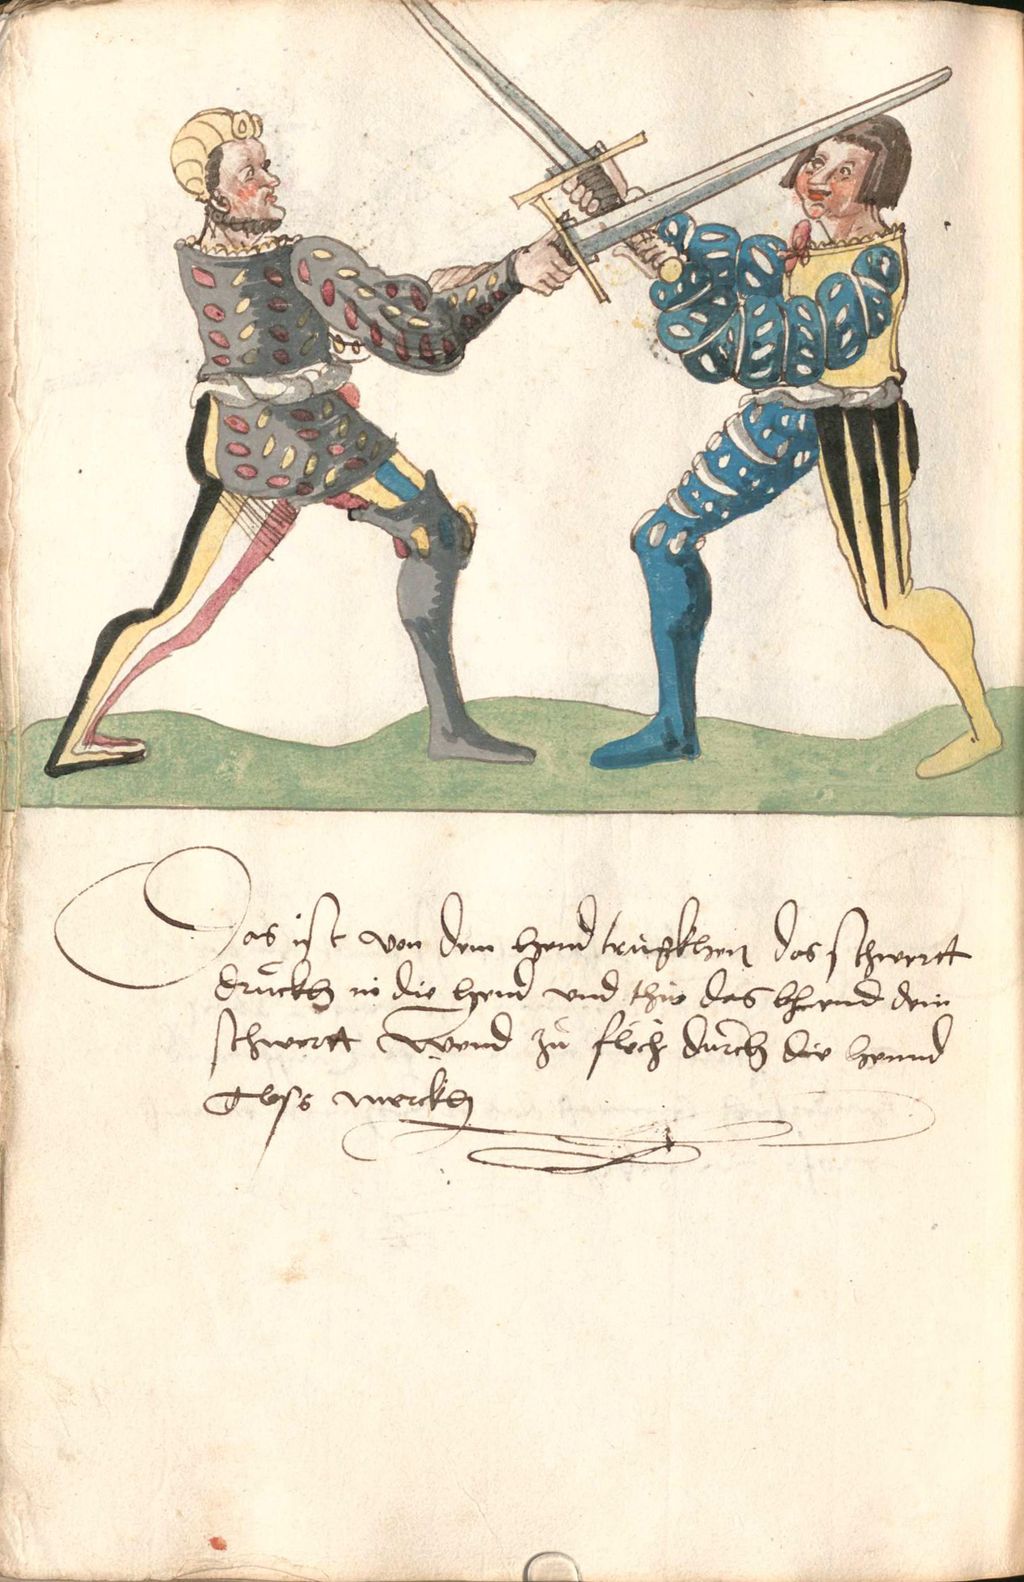 Das ist von dem hend trugkhen das schwertt
druckh in die hend und thuo das bhennd dein
schwertt Wend zu flech durch die hennd
Gloss merckh